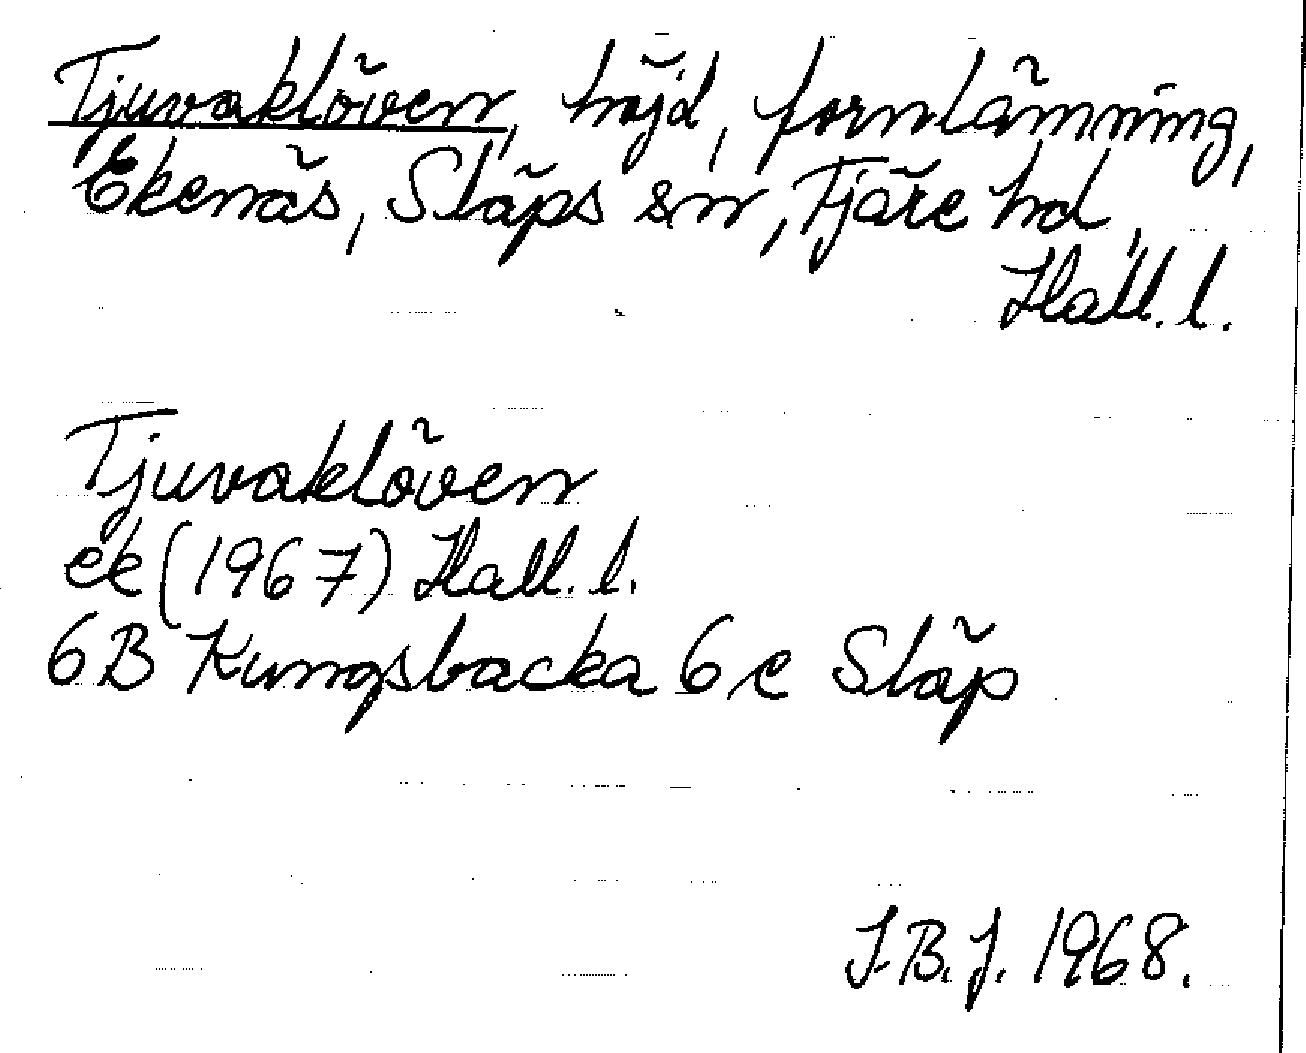 Tjuvaklöven, höjd, fornlämning,
Ekenäs, Släps sn, Fjäre hd,
Hall. l.
Tjuvaklöven
ek (1967) Hall. l.
6B Kungsbacka 6 e Släp
I.B.J. 1968.